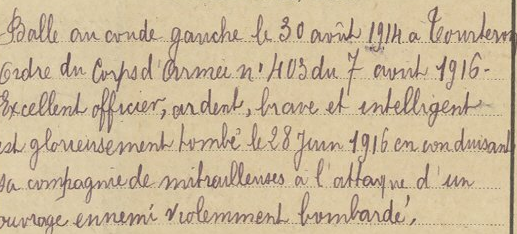 Balle au coude gauche le 30 août 1914 à Tourteron
Ordre du Corps d'Armée n° 403 du 7 avril 1916-
Excellent officier, ardent, brave et intelligent
est glorieusement tombé le 28 Juin 1916 en conduisant
sa compagnie de mitrailleuses à l'attaque d'un
ouvrage ennemi violemment bombardé.